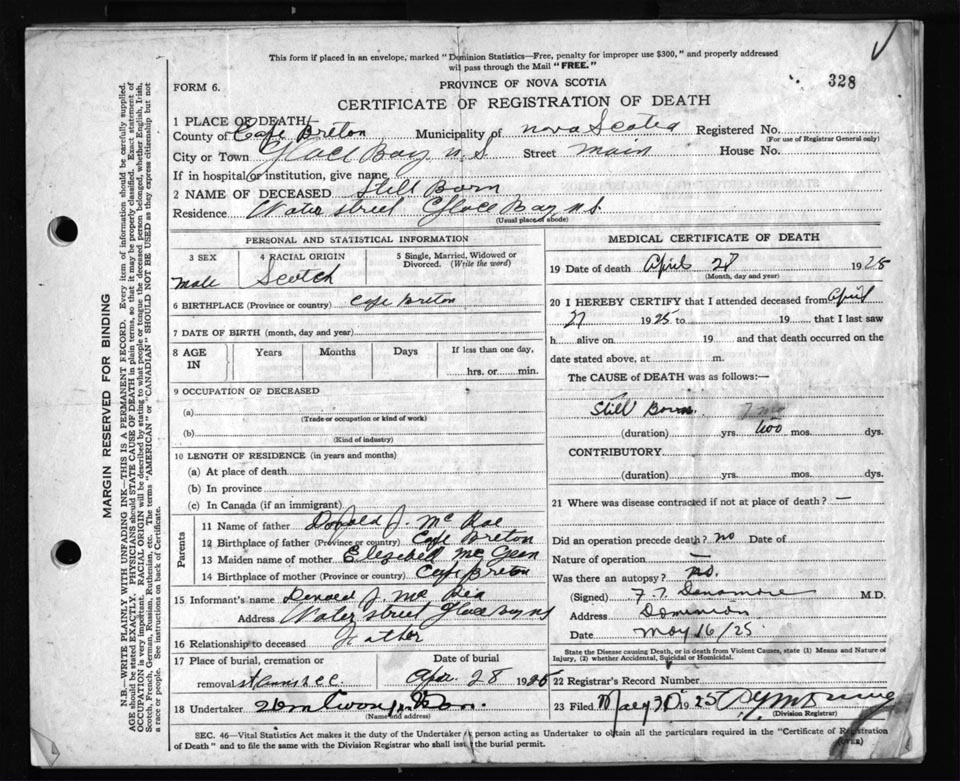 This form if placed in an envelope, marked "Dominion Statistics—Free, penalty for improper use $300," and properly addressed
will pass through the Mail "FREE."
328
FORM 6.
PROVINCE OF NOVA SCOTIA
CERTIFICATE OF REGISTRATION OF DEATH
1 PLACE OF DEATH
County of Cape Breton Municipality of Nova Scotia Registered No.
(For use of Registrar General only)
City or Town Glace Bay N.S Street Main House No.
If in hospital or institution, give name
2 NAME OF DECEASED Still Born
Residence Water Street Glace Bay N.S
(Usual place of abode)
MARGIN RESERVED FOR BINDING
N.B.—WRITE PLAINLY WITH UNFADING INK—THIS IS A PERMANENT RECORD. Every item of information should be carefully supplied.
AGE should be stated EXACTLY. PHYSICIANS should STATE CAUSE OF DEATH in plain terms, so that it may be properly classified. Exact statement of
OCCUPATION is very important. RACIAL ORIGIN will be described by stating to what people or tongue the deceased person belonged, whether English, Irish,
Scotch, French, German, Russian, Ruthenian, etc. The terms "AMERICAN" or "CANADIAN" SHOULD NOT BE USED as they express citizenship but not
a race or people. See instructions on back of Certificate.
PERSONAL AND STATISTICAL INFORMATION
3 SEX 4 RACIAL ORIGIN 5 Single, Married, Widowed or
Divorced. (Write the word)
male Scotch
6 BIRTHPLACE (Province or country) Cape Breton
7 DATE OF BIRTH (month, day and year)
8 AGE IN Years Months Days If less than one day,
hrs. or min.
9 OCCUPATION OF DECEASED
(a)
(Trade or occupation or kind of work)
(b)
(Kind of industry)
10 LENGTH OF RESIDENCE (in years and months)
(a) At place of death
(b) In province
(c) In Canada (if an immigrant)
Parents
11 Name of father Donald J. Mc Rae
12 Birthplace of father (Province or country) Cape Breton
13 Maiden name of mother
14 Birthplace of mother (Province or country) Cape Breton
15 Informant's name Donald J. Mc
Address Water Street Glace Bay N.S
16 Relationship to deceased Father
17 Place of burial, cremation or Date of burial
removal Apr. 28 1925
18 Undertaker
(Name and address)
MEDICAL CERTIFICATE OF DEATH
19 Date of death April 27 1925
(Month, day and year)
20 I HEREBY CERTIFY that I attended deceased from April
27 1925 to 19 that I last saw
h alive on 19 and that death occurred on the
date stated above, at m.
The CAUSE of DEATH was as follows:—
Still Born
(duration) yrs. mos. dys.
CONTRIBUTORY
(duration) yrs. mos. dys.
21 Where was disease contracted if not at place of death? —
Did an operation precede death? no Date of
Nature of operation —
Was there an autopsy? no.
(Signed) M.D.
Address Dominion
Date May 16/25
State the Disease causing Death, or in death from Violent Causes, state (1) Means and Nature of
Injury, (2) whether Accidental, Suicidal or Homicidal.
22 Registrar's Record Number
23 Filed May 1925
(Division Registrar)
SEC. 46—Vital Statistics Act makes it the duty of the Undertaker or person acting as Undertaker to obtain all the particulars required in the "Certificate of Registration
of Death" and to file the same with the Division Registrar who shall issue the burial permit.
(OVER)